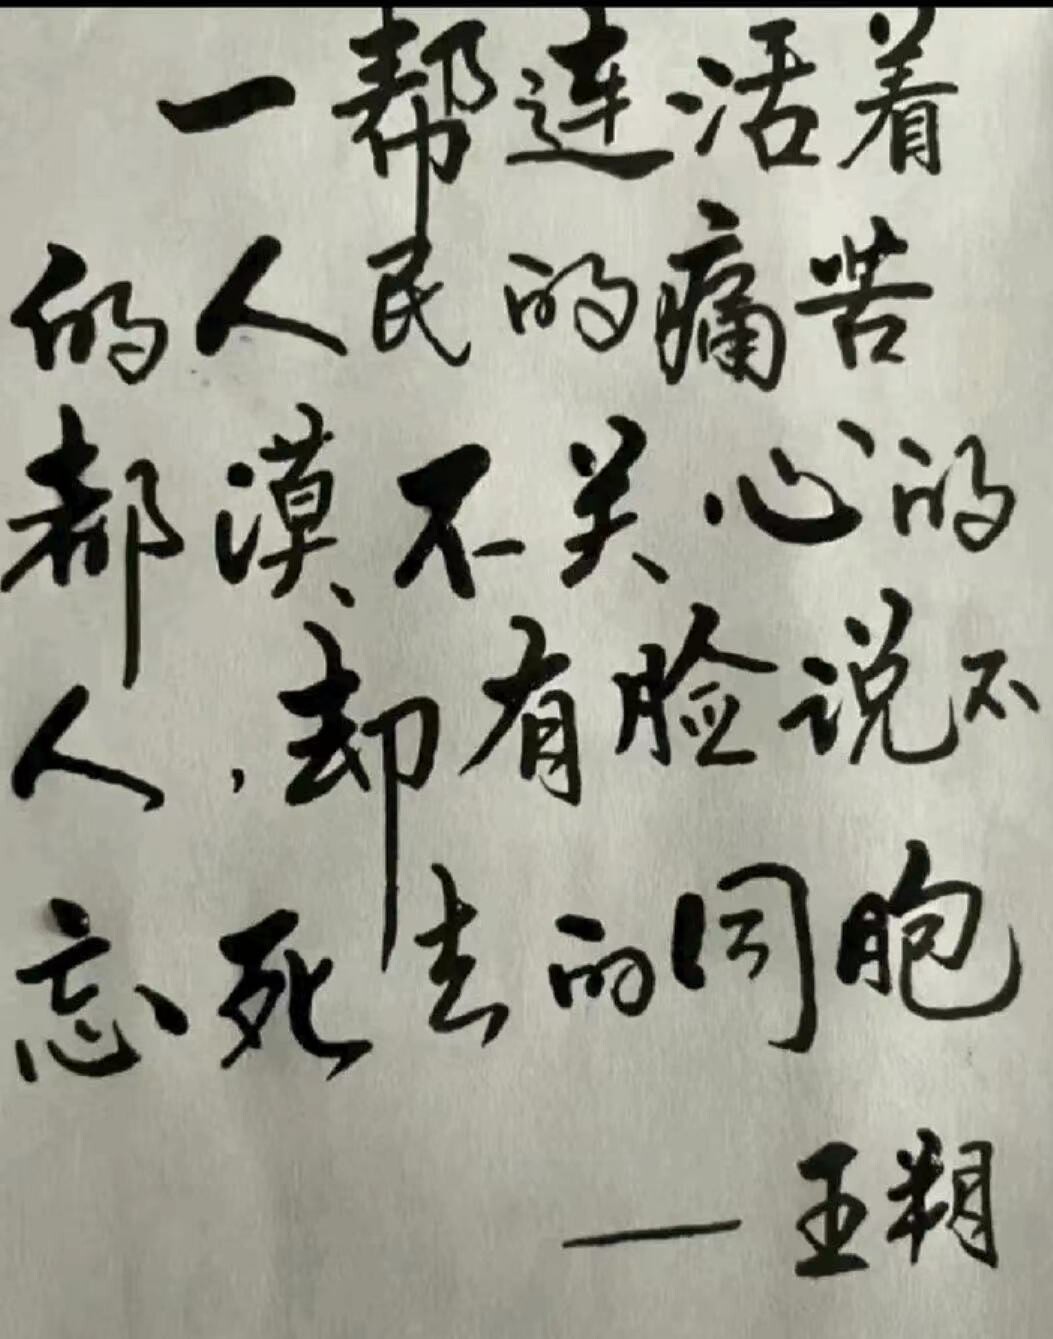 一帮连活着
的人民的痛苦
都漠不关心的
人，却有脸说不
忘死去的同胞
——王朔